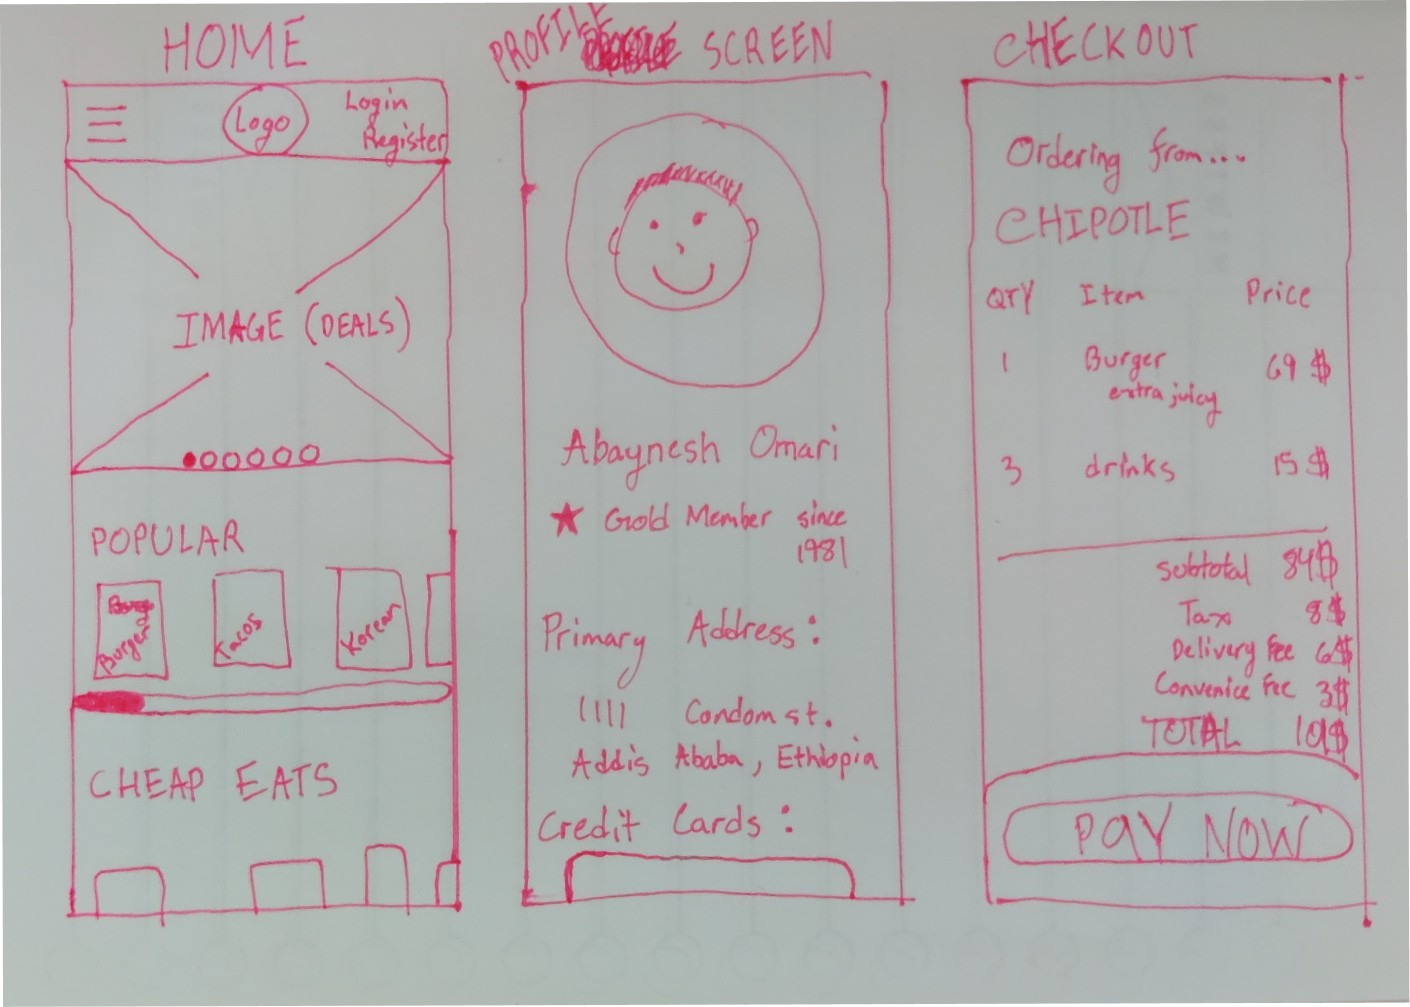 HOME
Logo
Login
Register
IMAGE (DEALS)
POPULAR
Burger
Tacos
Korean
CHEAP EATS
PROFILE SCREEN
Abaynesh Omari
★ Gold Member since
1981
Primary Address:
1111 Condom st.
Addis Ababa, Ethiopia
Credit Cards:
CHECKOUT
Ordering from...
CHIPOTLE
QTY Item Price
1 Burger 69 $
extra juicy
3 drinks 15 $
subtotal 84$
Tax 8$
Delivery Fee 6$
Convenice Fee 3$
TOTAL 101$
PAY NOW